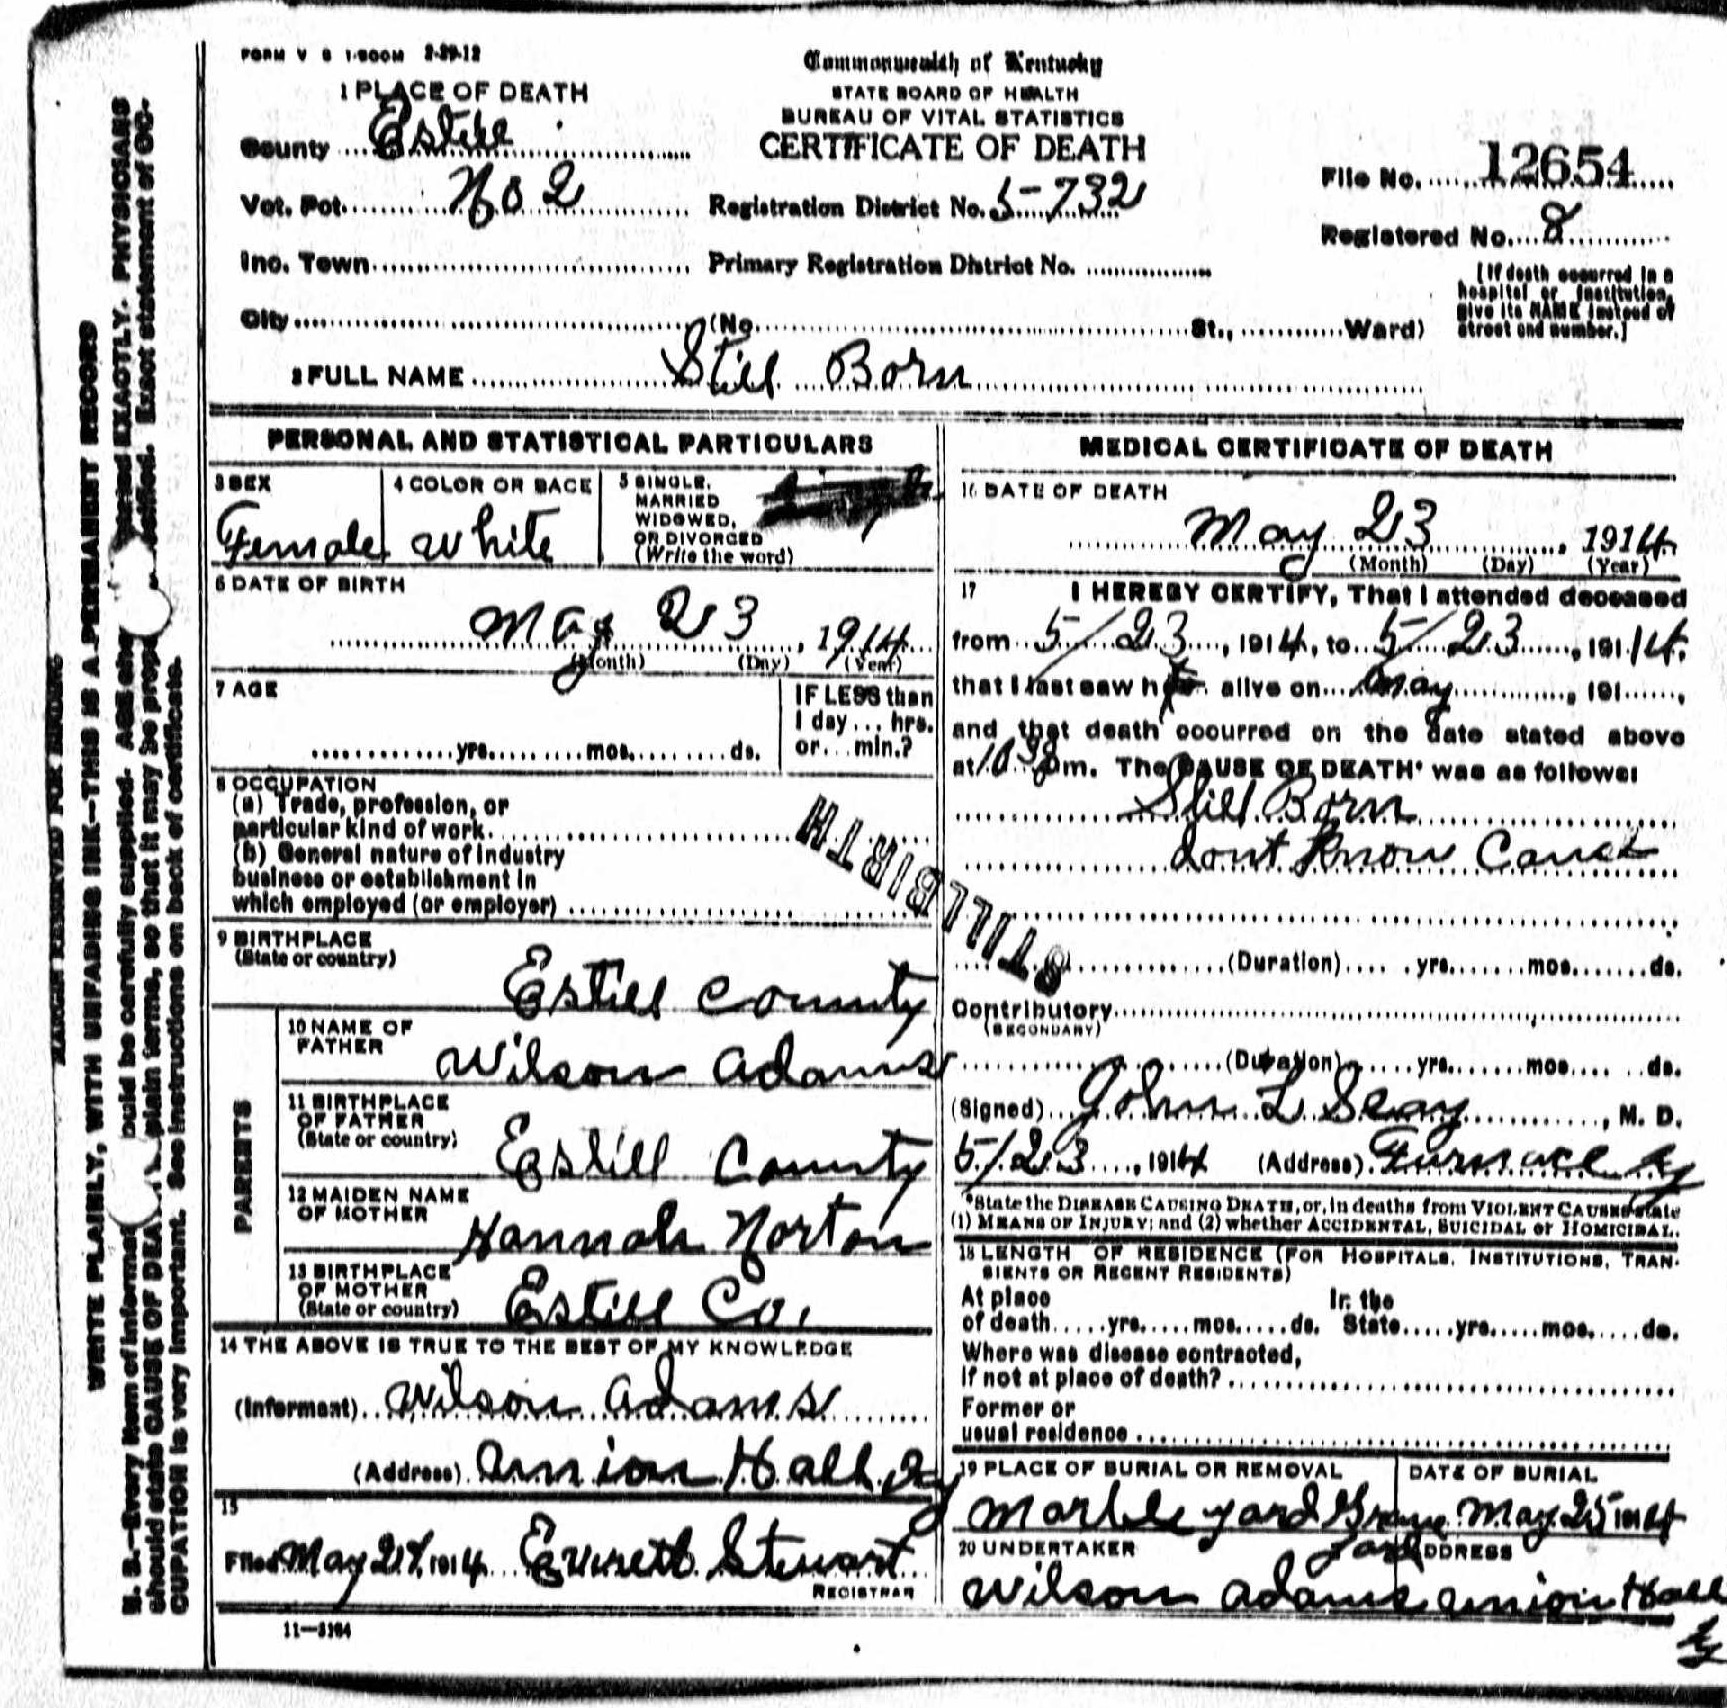 FORM V S 1-500M 2-29-12
Commonwealth of Kentucky
STATE BOARD OF HEALTH
BUREAU OF VITAL STATISTICS
CERTIFICATE OF DEATH
1 PLACE OF DEATH
County Estill
Vot. Pct. No 2
Registration District No. 5-732
File No. 12654
Registered No. 8
Inc. Town
Primary Registration District No.
[If death occurred in a
hospital or institution,
give its NAME instead of
street and number.]
City (No. St., Ward)
2 FULL NAME Still Born
PERSONAL AND STATISTICAL PARTICULARS
3 SEX
Female
4 COLOR OR RACE
White
5 SINGLE,
MARRIED
WIDOWED,
OR DIVORCED
(Write the word)
6 DATE OF BIRTH
May 23, 1914
(Month) (Day) (Year)
7 AGE
yrs. mos. ds.
IF LESS than
1 day... hrs.
or... min.?
8 OCCUPATION
(a) Trade, profession, or
particular kind of work.
(b) General nature of industry
business or establishment in
which employed (or employer)
STILLBIRTH
9 BIRTHPLACE
(State or country)
Estill County
PARENTS
10 NAME OF
FATHER
Wilson Adams
11 BIRTHPLACE
OF FATHER
(State or country)
Estill County
12 MAIDEN NAME
OF MOTHER
Hannah Norton
13 BIRTHPLACE
OF MOTHER
(State or country)
Estill Co.
14 THE ABOVE IS TRUE TO THE BEST OF MY KNOWLEDGE
(Informant) Wilson Adams
(Address) Union Hall Ky
15
Filed May 1914 Everett Stewart
REGISTRAR
11—3184
MEDICAL CERTIFICATE OF DEATH
16 DATE OF DEATH
May 23, 1914
(Month) (Day) (Year)
17 I HEREBY CERTIFY, That I attended deceased
from 5/23, 1914, to 5/23, 1914.
that I last saw h alive on May, 191
and that death occurred on the date stated above
at m. The CAUSE OF DEATH* was as follows:
Still Born
dont Know Cause
(Duration) yrs. mos. ds.
Contributory
(SECONDARY)
(Duration) yrs. mos. ds.
(Signed) John L Seay, M. D.
5/23, 1914 (Address) Furnace Ky
*State the DISEASE CAUSING DEATH, or, in deaths from VIOLENT CAUSES state
(1) MEANS OF INJURY; and (2) whether ACCIDENTAL, SUICIDAL or HOMICIDAL.
18 LENGTH OF RESIDENCE (FOR HOSPITALS, INSTITUTIONS, TRAN-
SIENTS OR RECENT RESIDENTS)
At place In the
of death yrs. mos. ds. State yrs. mos. ds.
Where was disease contracted,
If not at place of death?
Former or
usual residence
19 PLACE OF BURIAL OR REMOVAL
Marble yard Grave yard
DATE OF BURIAL
May 25 1914
20 UNDERTAKER
Wilson Adams
ADDRESS
Union Hall
Ky
MARGIN RESERVED FOR BINDING
WRITE PLAINLY, WITH UNFADING INK—THIS IS A PERMANENT RECORD
N. B.—Every item of informat ould be carefully supplied. AGE should be stated EXACTLY. PHYSICIANS
should state CAUSE OF DEA plain terms, so that it may be prop assified. Exact statement of OC-
CUPATION is very important. See instructions on back of certificate.